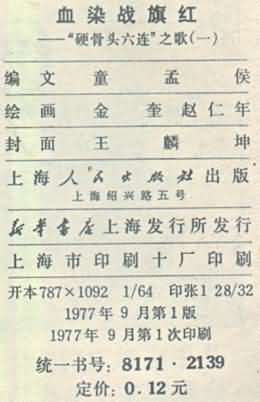 血染战旗红
——“硬骨头六连”之歌(一)
编文 童孟侯
绘画 金奎 赵仁年
封面 王麟坤
上海人民出版社出版
上海绍兴路五号
新华书店上海发行所发行
上海市印刷十厂印刷
开本787×1092 1/64 印张1 28/32
1977年9月第1版
1977年9月第1次印刷
统一书号：8171·2139
定价：0.12元